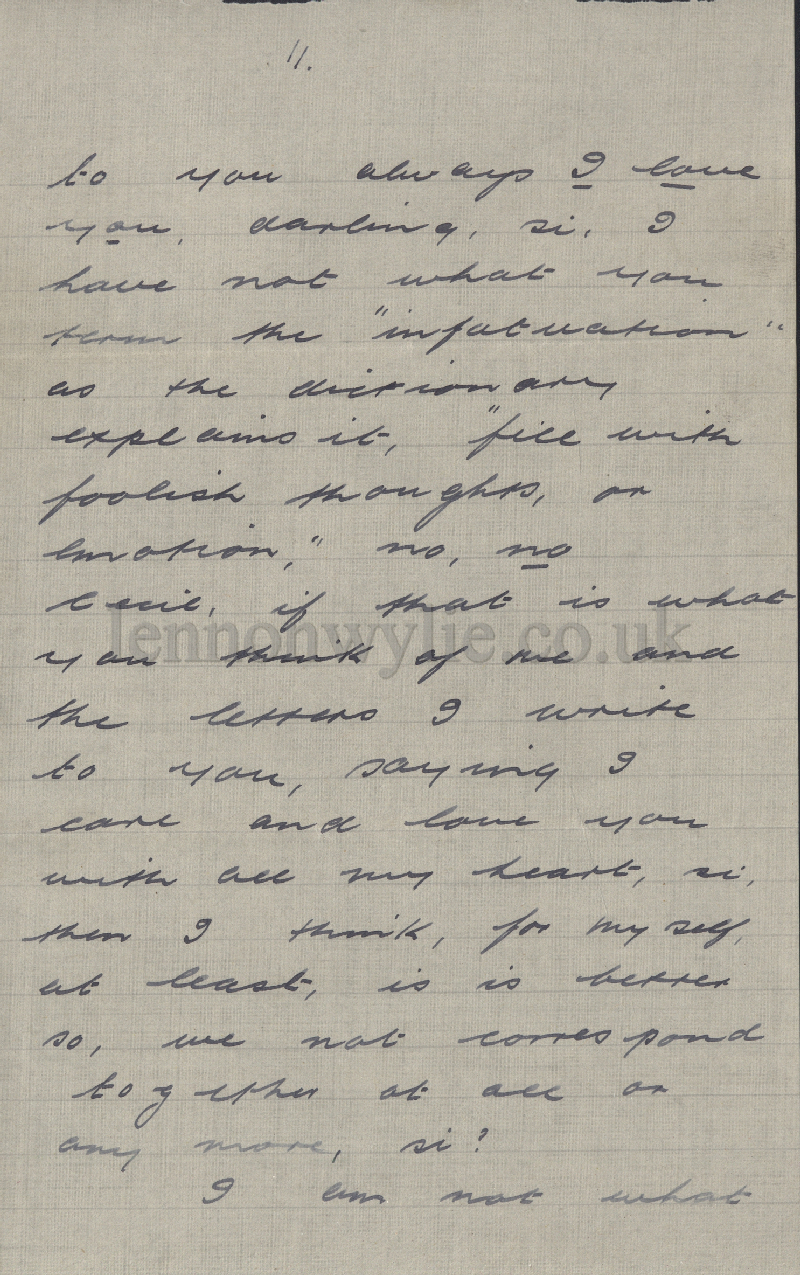 11.
to you always I love
you, darling, si, I
have not what you
term the "infatuation"
as the dictionary
explains it, "fill with
foolish thoughts, or
emotion," no, no
Cecil, if that is what
lennonwylie.co.uk
you think of me and
the letters I write
to you, saying I
care and love you
with all my heart, si,
then I think, for my self,
at least, is is better
so, we not correspond
together at all or
any more, si?
I am not what